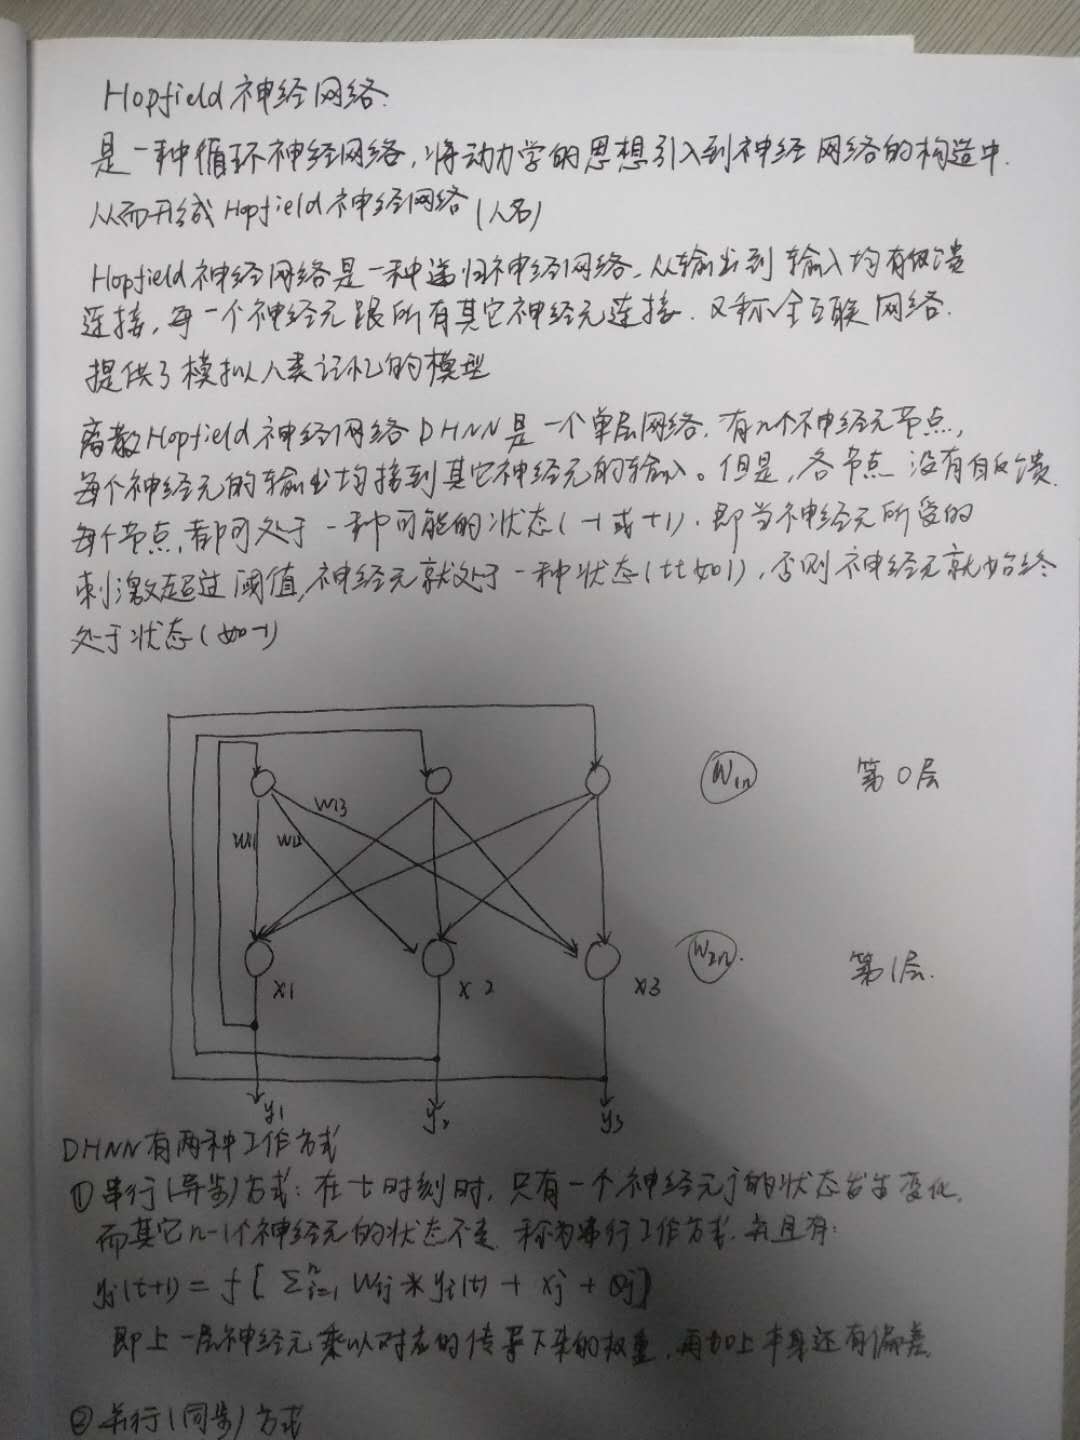 Hopfield 神经网络.
是一种循环神经网络,将动力学的思想引入到神经网络的构造中.
从而形成Hopfield神经网络(人名)
Hopfield神经网络是一种递归神经网络.从输出到输入均有反馈
连接,每一个神经元跟所有其它神经元连接.又称全互联网络.
提供了模拟人类记忆的模型
离散Hopfield神经网络DHNN是一个单层网络.有n个神经元节点,
每个神经元的输出均接到其它神经元的输入。但是,各节点没有自反馈.
每个节点,都可处于一种可能的状态(-1或+1).即当神经元所受的
刺激超过阈值,神经元就处于一种状态(比如1),否则神经元就始终
处于状态(如-1)
W1n 第0层
W13
W11 W12
W2n. 第1层.
x1 x2 x3
y1 y2 y3
DHNN有两种工作方式
①串行(异步)方式:在t时刻时,只有一个神经元j的状态发生变化,
而其它n-1个神经元的状态不变 称为串行工作方式.并且有:
yj(t+1) = f[ Σⁿi=1 Wij * yi(t) + xj + θj]
即上一层神经元乘以对应的传导下来的权重,再加上本身还有偏差
②并行(同步)方式